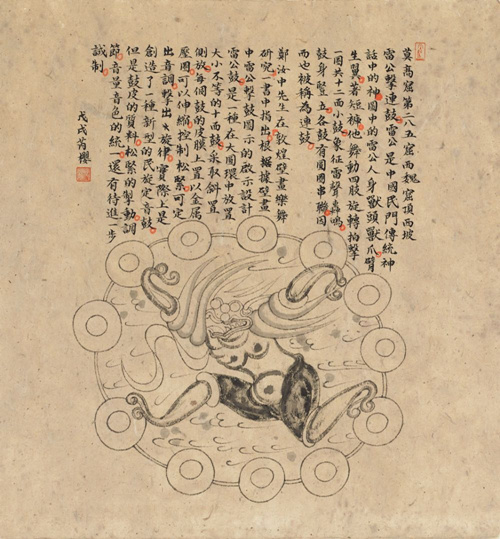 莫高窟第二八五窟西魏窟頂西坡
雷公擊連鼓雷公是中國民門傳統神
話中的神圖中的雷公人身獸頭獸爪臂
生翼著短褲他舞動四肢旋轉拍擊
一圈共十二面小鼓象征雷聲轟鳴
鼓身豎立各鼓有圓圈串聯因
而也被稱為連鼓
鄭汝中先生在敦煌壁畫樂舞
研究一書中指出根據壁畫
中雷公擊鼓圖示的啟示設計
雷公鼓是一種在大圓環中放置
大小不等的十面鼓采取斜置
側放每個鼓的皮膜上置以金屬
壓圈可以伸縮控制松緊可定
出音調擊出旋律實際上是
創造了一種新型的民族定音鼓
但是鼓皮的質料松緊的掣動調
節音量音色的統一還有待進一步
誠制
戊戌芮櫻